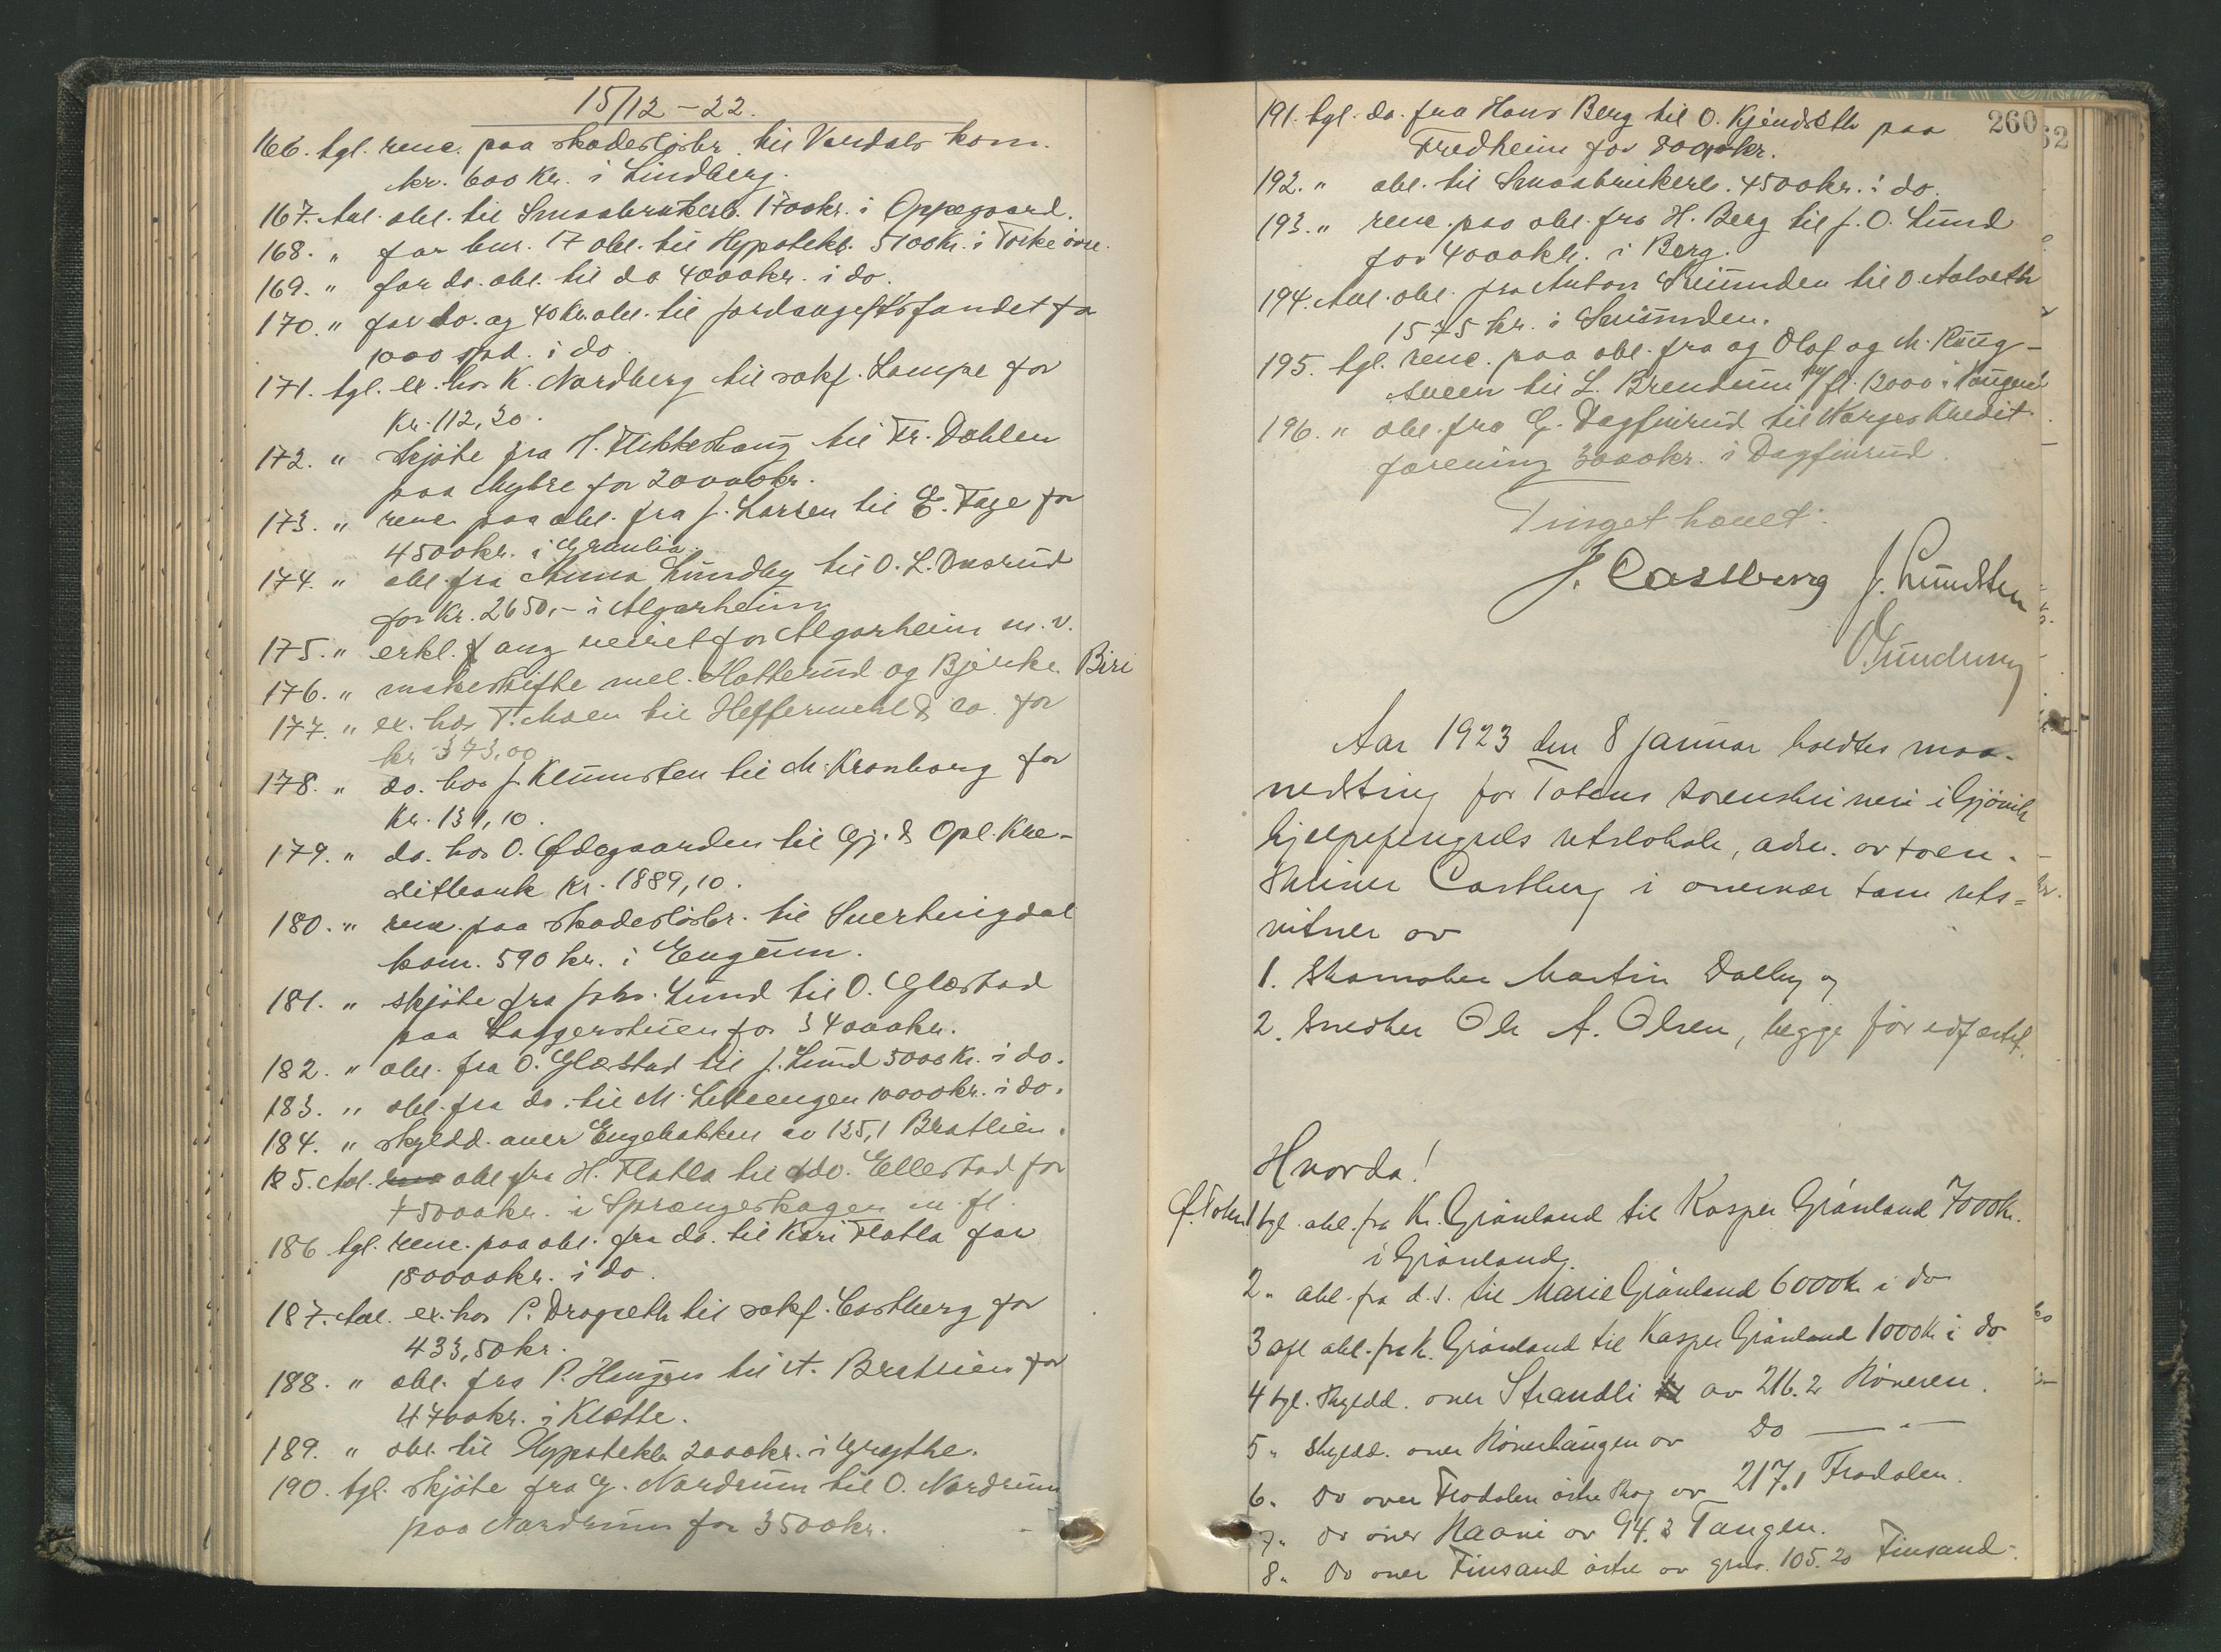 15/12-22.
166. tgl. renc. paa skadesløsbr. til Vardals kom.
kr. 600 Kr. i Lindberg.
167. Avl. obl. til Smaabrukerb. 1700kr. i Oppegaard.
168. " for bnr. 17 obl. til Hypotekb. 5100Kr. i Torke øvre.
169. " for do. obl. til do 4000kr. i do.
170. " for do. og 40 kr. obl. til jordavgiftsfondet for
1000 spd. i do.
171. tgl. ex. hos K. Nordberg til sakf. Lampe for
Kr. 112,30.
172. " skjøte fra H. Flikkeshaug til Fr. Dahlen
paa Myhre for 20000kr.
173. " renc. paa obl. fra J. Larsen til E. Fage for
4500kr. i Granlia.
174. " obl. fra Anna Lundby til O. L.
for Kr. 2650,- i Algarheim
175. " erkl. ang veiret for Algarheim m. v.
176. " makeskifte mel. Hatterud og Bjerke. Biri
177. " ex. hos T. Moen til Heffermehl & Co. for
kr 373,00
178. " do. hos J. Klundsten til M. Kronborg for
Kr. 131,10.
179. " do. hos O. Ødegaarden til Gj. & Opl. Kre-
ditbank Kr. 1889,10.
180. " renc. paa skadesløsbr. til Snertingdal
kom. 590 kr. i Engum.
181. " skjøte fra Johs. Lund til O. Glæstad
paa Laggerstuen for 34000kr.
182. " obl. fra O. Glæstad til J. Lund 5000 Kr. i do.
183. " obl. fra do. til M. 10000kr. i do.
184. " skyldd. over Engebakken av 125,1 Bratlien.
185. Avl. obl fra H. Flatla til do. Ellestad for
75000kr. i Sprangerskogen m. fl.
186 tgl. renc. paa obl. fra do. til Kari Flatla for
18000kr. i do.
187. Avl. ex. hos P. Dragseth til sakf. Castberg for
433,50kr.
188. " obl. fra P. Haugen til A. Bratlien for
4700kr. i Kløtte.
189. " obl. til Hypotekb. 2000kr. i Grythe.
190. tgl. skjøte fra G. Nordrum til O. Nordrum
paa Nordrum for 3500kr.
260
191. tgl. do. fra Hans Berg til O. Kjendseth paa
Fredheim for 8000kr.
192. " obl. til Smaabrukerb. 4500kr. i do.
193. " renc. paa obl. fra H. Berg til J. O. Lund
for 4000kr. i Berg.
194. Avl. obl. fra Anton Snumden til O. Aalseth
1575 kr. i Snumden.
195. tgl. renc. paa obl. fra og Olaf og M. Ring-
sveen til L. Brendum m/fl. 12000 i
196. " obl. fra G. Dagfinrud til Norges Kredit-
forening 3000kr. i Dagfinrud.
Tinget hævet:
J. Castberg J. Lundsten
O. Lundberg
Aar 1923 den 8 januar holdtes maa-
nedsting for Totens sorenskriveri i Gjøvik
hjelpefengsels retslokale, adm. av soren-
skriver Castberg i overvær som rets=
vitner av
1. Skomaker Martin Dalby og
2. Snedker Ole A. Olsen, begge før edfæstet.
Hvorda!
Ø. Toten 1 tgl. obl. fra Kr. Grønland til Kasper Grønland 7000kr.
i Grønland.
2 " obl. fra d. s. til Marie Grønland 6000kr i do
3 avl obl. fra K. Grønland til Kasper Grønland 1000kr i do
4 tgl. Skyldd. over Strandli av 216.2 Røneren.
5 " skyldd. over Rønerhaugen av Do — " —
6. Do over Frodalen østre Skog av 217.1 Frodalen.
7 " Do over Naani av 94.3 Tangen.
8 " Do over Finsand østre av gnr. 105.20 Finsand.